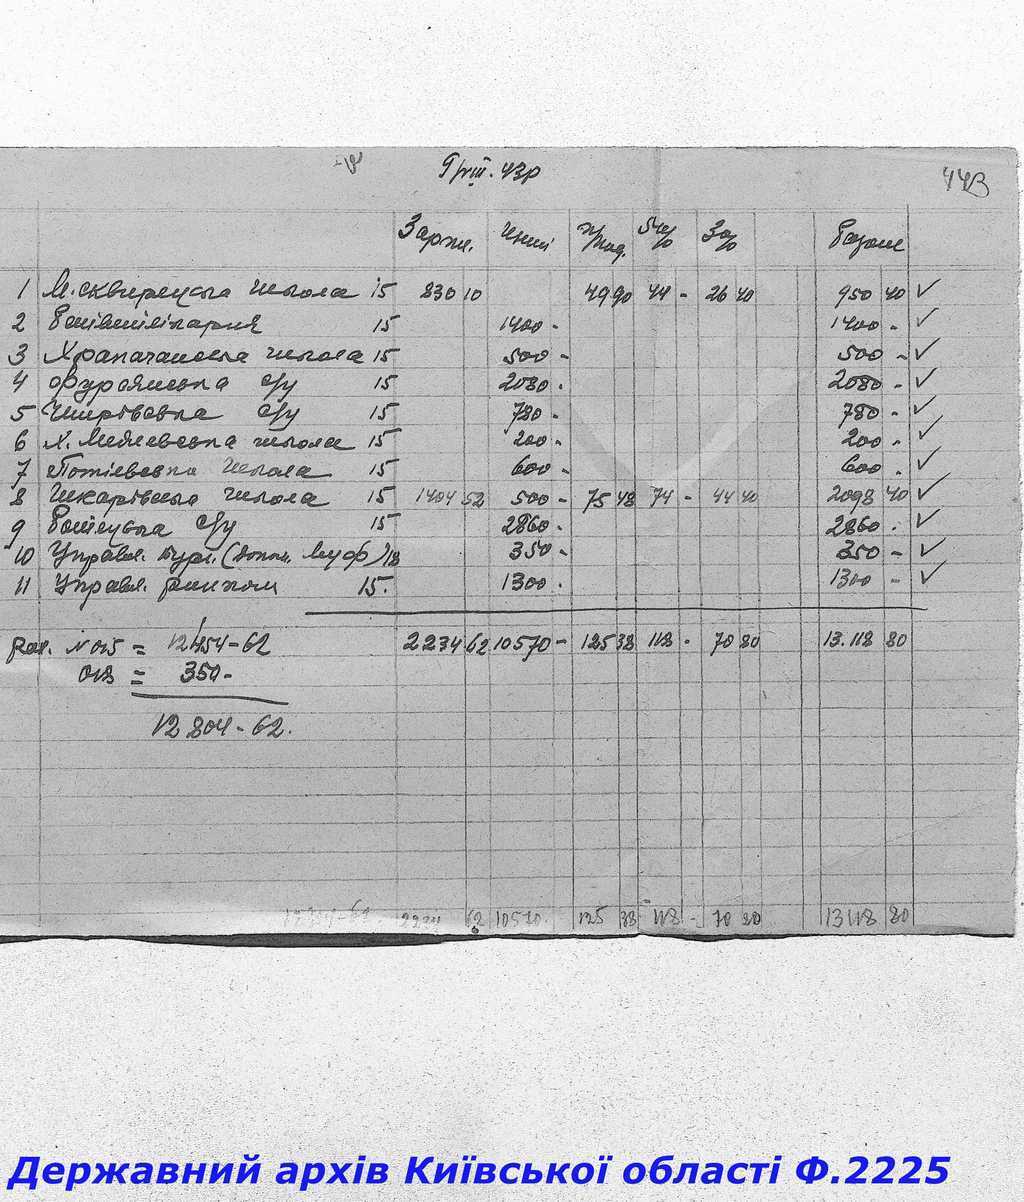 9/VIII. 43р
443
Зарпл. Інші 54% 3% Разом
1 М. сквирецька школа 15 830 10 49 90 44 - 26 40 950 40 ✓
2 15 1400 - 1400 - ✓
3 Храпачанська школа 15 500 - 500 - ✓
4 Фурсянська с/у 15 2080 - 2080 - ✓
5 с/у 15 780 - 780 - ✓
6 школа 15 200 - 200 - ✓
7 школа 15 600 - 600 - ✓
8 Шкарівська школа 15 1404 52 500 - 75 48 74 - 44 40 2098 40 ✓
9 с/у 15 2860 - 2860 - ✓
10 Управл. 18 350 - 350 - ✓
11 Управл. 15. 1300 - 1300 - ✓
Раз. N 015 = 12454-62 2234 62 10570 - 125 38 118 - 70 80 13.118 80
018 = 350 -
12804-62.
2234 62 10570 - 125 38 118 - 70 80 13118 80
Державний архів Київської області Ф.2225